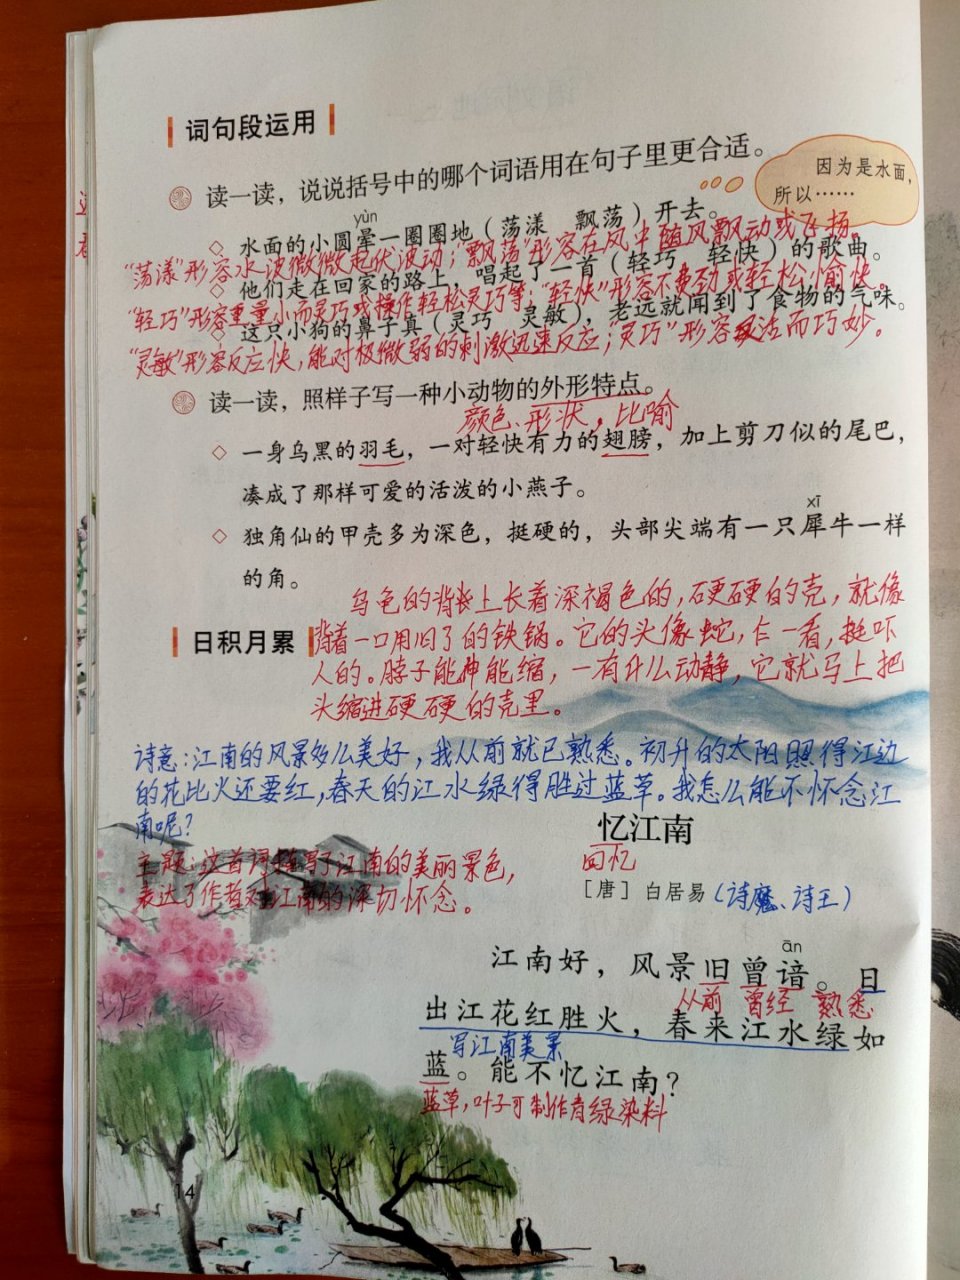 词句段运用
读一读，说说括号中的哪个词语用在句子里更合适。
因为是水面，
所以……
yùn
水面的小圆晕一圈圈地（荡漾 飘荡）开去。
“荡漾”形容水波微微起伏波动；“飘荡”形容在风中随风飘动或飞扬。
他们走在回家的路上，唱起了一首（轻巧 轻快）的歌曲。
“轻巧”形容重量小而灵巧或操作轻松灵巧等；“轻快”形容不费劲或轻松愉快。
这只小狗的鼻子真（灵巧 灵敏），老远就闻到了食物的气味。
“灵敏”形容反应快，能对极微弱的刺激迅速反应；“灵巧”形容灵活而巧妙。
读一读，照样子写一种小动物的外形特点。
颜色、形状，比喻
一身乌黑的羽毛，一对轻快有力的翅膀，加上剪刀似的尾巴，
凑成了那样可爱的活泼的小燕子。
xī
独角仙的甲壳多为深色，挺硬的，头部尖端有一只犀牛一样
的角。
乌龟的背上长着深褐色的，硬硬的壳，就像
日积月累
背着一口用旧了的铁锅。它的头像蛇，乍一看，挺吓
人的。脖子能伸能缩，一有什么动静，它就马上把
头缩进硬硬的壳里。
诗意：江南的风景多么美好，我从前就已熟悉。初升的太阳照得江边
的花比火还要红，春天的江水绿得胜过蓝草。我怎么能不怀念江
南呢？
忆江南
主题：这首词描写了江南的美丽景色，
回忆
表达了作者对江南的深切怀念。
［唐］白居易（诗魔、诗王）
ān
江南好，风景旧曾谙。日
从前 曾经 熟悉
出江花红胜火，春来江水绿如
写江南美景
蓝。能不忆江南？
蓝草，叶子可制作青绿染料
14